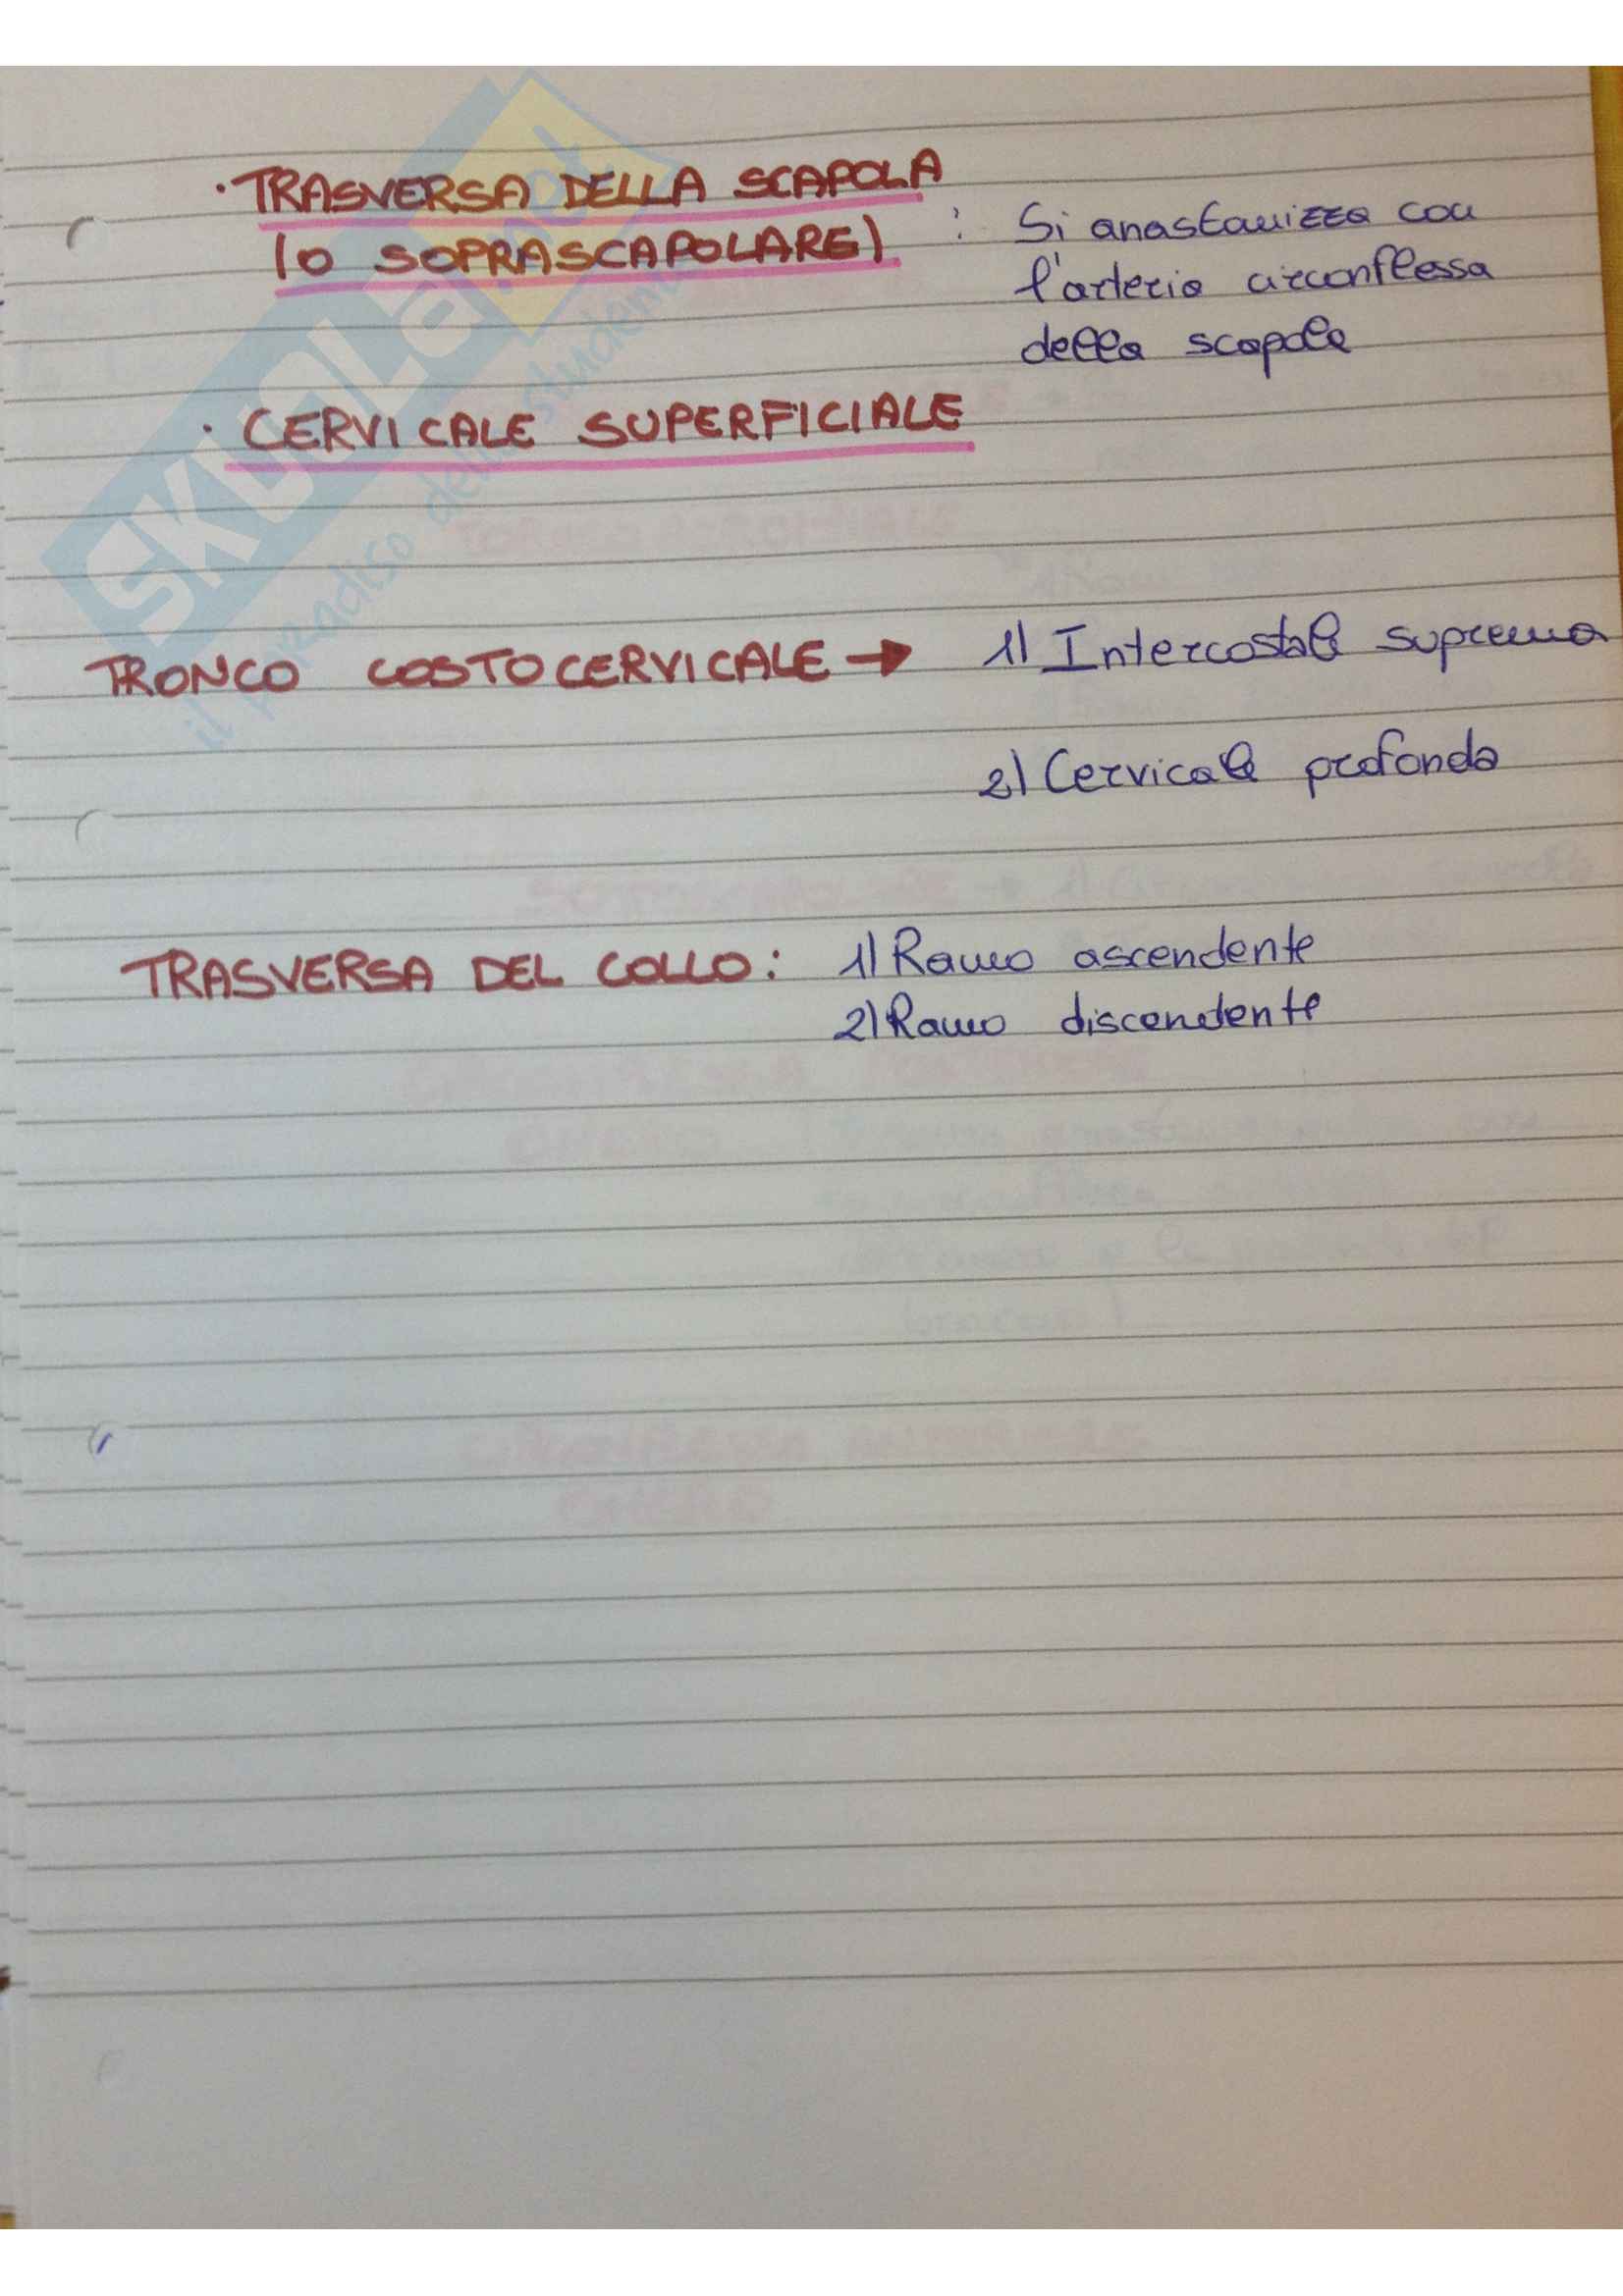 · TRASVERSA DELLA SCAPOLA
(O SOPRASCAPOLARE) : Si anastomizza con
l'arteria circonflessa
della scapola
· CERVICALE SUPERFICIALE
TRONCO COSTOCERVICALE → 1) Intercostale suprema
2) Cervicale profonda
TRASVERSA DEL COLLO: 1) Ramo ascendente
2) Ramo discendente
SKUOLA.net
il paradiso dello studente